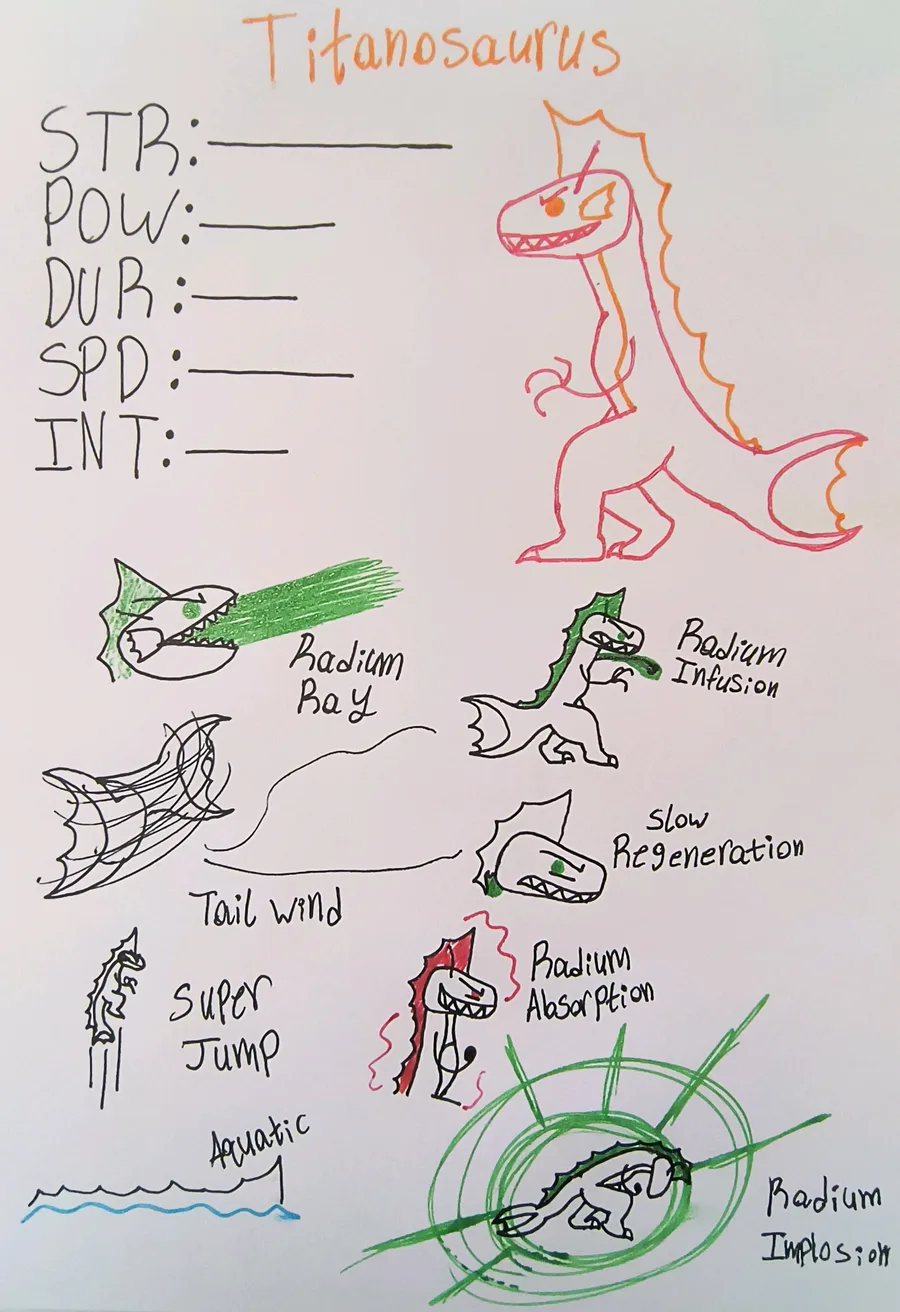 Titanosaurus
STR:
POW:
DUR:
SPD:
INT:
Radium
Ray
Radium
Infusion
Tail wind
Slow
Regeneration
Super
Jump
Radium
Absorption
Aquatic
Radium
Implosion